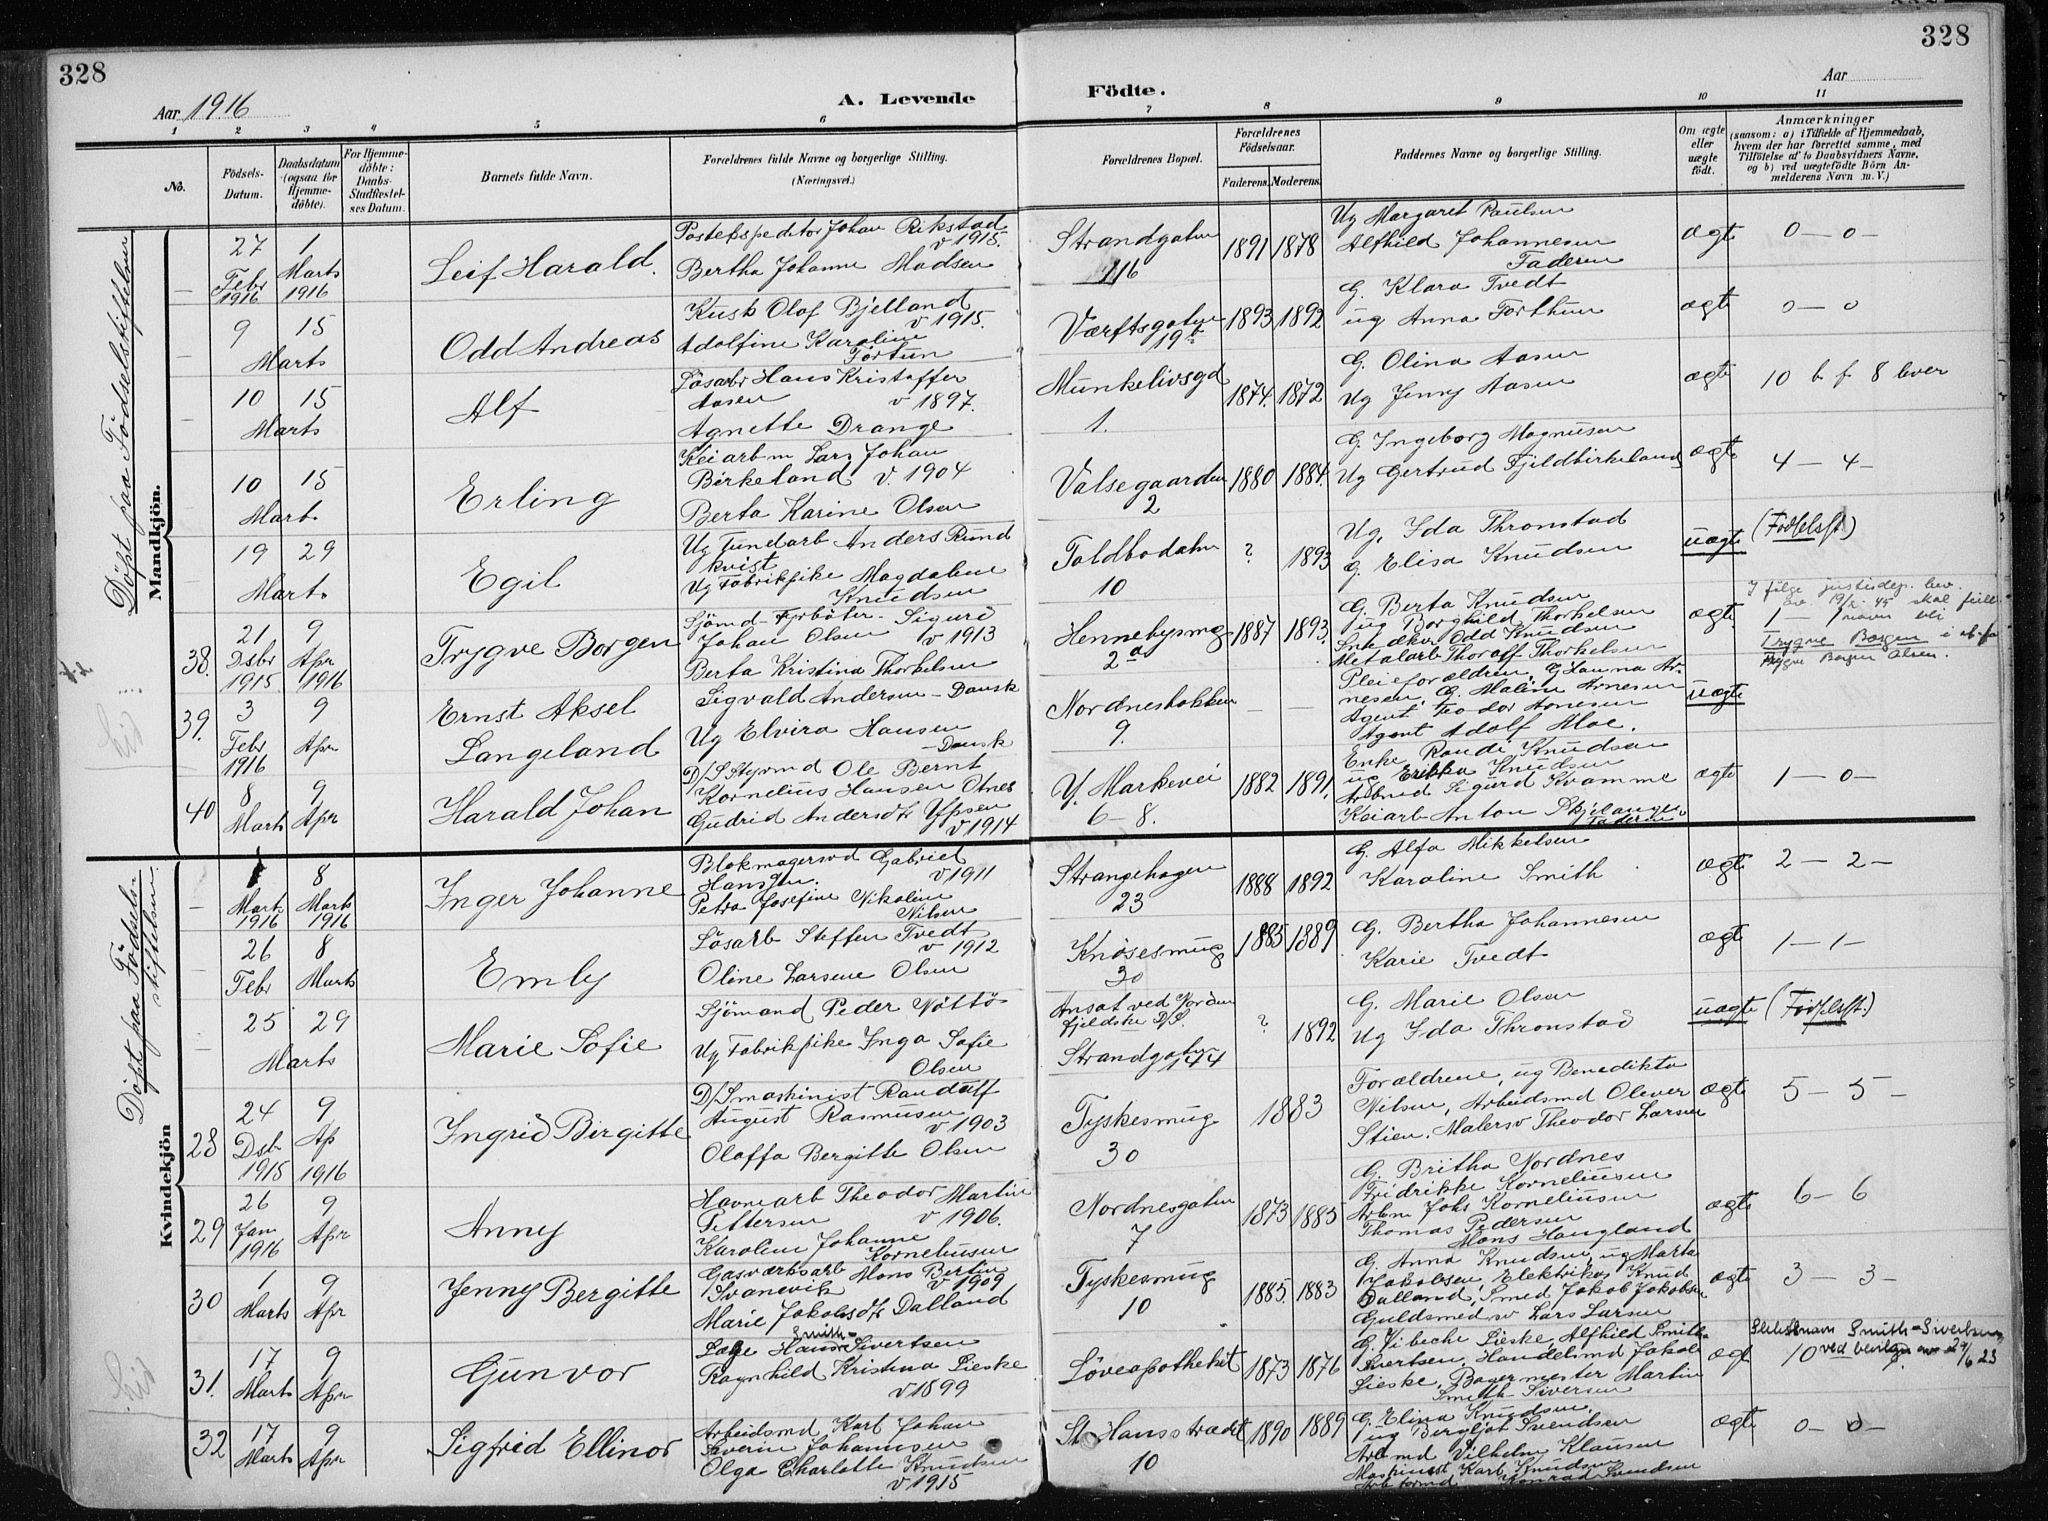 328
328
Aar 1916
A. Levende
Födte.
Aar
1 2 3 4 5 6 7 8 9 10 11
No.
Födsels-Datum.
Daabsdatum (ogsaa for Hjemme-döbte).
For Hjemme-döbte: Daabs-Stadfestel-ses Datum.
Barnets fulde Navn.
Forældrenes fulde Navne og borgerlige Stilling. (Næringsvei.)
Forældrenes Bopæl.
Forældrenes Födselsaar.
Faderens. Moderens.
Faddernes Navne og borgerlige Stilling.
Om ægte eller uægte födt.
Anmærkninger
(saasom: a) i Tilfælde af Hjemmedaab, hvem der har forrettet samme, med Tilföielse af to Daabsvidners Navne, og b) ved uægtefödte Börn Anmelderens Navn m. V.)
Döpt paa Födselsstiftelsen
Mandkjön.
27 Febr 1916
1 Marts 1916
Leif Harald.
Postekspeditor Johan Rikstad
v 1915.
Bertha Johanne Madsen
Strandgaten
116
1891 1878
Ug Margaret Paulsen
Alfhild Johannesen
Faderen
ægte
0 – 0 –
9 15
Marts
Odd Andreas
Kusk Olaf Bjelland
v 1915.
Adolfine Karoline
Fortun
Værftsgaten
19b
1893 1892
G. Klara Tvedt
ug Anna Forthun
ægte
0 – 0
10 15
Marts
Alf
Lösarb Hans Kristoffer
Aasen v 1897.
Agnette Drange
Munkelivsgd
1.
1874. 1872
G. Olina Aasen
Ug Jenny Aasen
ægte
10 b f 8 lever
10 15
Marts
Erling
Keiarbm Lars Johan
Birkeland v. 1904
Berta Karine Olsen
Valsegaarden
2
1880 1884.
G. Ingeborg Magnusen
Ug Gertrud Fjeldbirkeland
ægte
4 – 4 –
19 29
Marts
Egil
Ug Jundarb Anders Rund
kvist
Ug Fabrikpike Magdalene
Knudsen
Toldbodalm
10
? 1893
Ug. Ida Thronstad
g. Elisa Knudsen
uægte
(Fødselsst)
38.
21 Dsbr 1915
9 Apr 1916
Trygve Borgen
Sjömd – Fyrböter – Sigurd
Johan Olsen v 1913
Berta Kristina Thorkelsen
Hennebysmg
2a
1887 1893.
G. Berta Knudsen
ug Borghild Thorkelsen
Snedkr. Odd Knudsen
Metalarb Thoralf Thorkelsen
ægte
1 –
I følge justisdep. bev.
av 19/2 45 skal fulle
navn bli
Trygve Borgen
Trygve Borgen Olsen.
39.
3 Febr 1916
9 Apr
Ernst Aksel
Langeland
Sigvald Andersen – Dansk
Ug Elvira Hansen
– Dansk
Nordnesbakken
9.
– –
Pleieforældren, G Hanna Ar-
nesen, G. Malene Arnesen
Agent Teodor Arnesen
Agent Adolf Moe.
uægte
40
8 Marts
9 Apr
Harald Johan
D/S Styrmd Ole Bernt
Kornelius Hansen Otnes
Gudrid Andersdtr Ypsen
v 1914
Y. Markevei
6 – 8.
1882 1891.
Enke Randi Knudsen
ug Erikka Knudsen
Arbmd Sigurd Kvamme
Keiarb Anton
Faderen
ægte
1 – 0 –
Döpt paa Födsels-
stiftelsen
Kvindekjön
Marts 1916
8 Marts 1916
Inger Johanne
Blokmagersvd Gabriel
Hanssen. v 1911
Petra Josefine Nikoline
Nilsen
Strangehagen
23
1888 1892
G. Alfa Mikkelsen
Karoline Smith
ægte
2 – 2 –
26 Febr
8 Marts
Emly
Lösarb Steffen Tvedt
v 1912
Oline Larsene Olsen
Knösesmug
30
1885 1889
G. Bertha Johannesen
Karie Tvedt
ægt
1 – 1 –
25 29
Marts
Marie Sofie
Sjömand Peder Nöttö
Ug Fabrikpike Inga Sofie
Olsen
Ansat ved Norden
fjeldske D/S.
Strandgaten
144
? 1892
G. Marie Olsen
Ug Ida Thronstad
uægte
(Fødselsst.)
28
24 Dsbr 1915
9 Ap 1916
Ingrid Birgitte
D/S maskinist Randulf
August Rasmusen
v 1903
Olaffa Bergitte Olsen
Tyskesmug
30
1883
Forældrene, ug Benedikta
Nilsen, Arbeidsmd Olever
Stien. Malersv Theodor Larsen
ægte
5 – 5 –
29
26 Jan 1916
9 Apr
Anny
Havnearb Theodor Martin
Pettersen v 1906.
Karoline Johanne
Korneliussen
Nordnesgaten
7
1873 1885
G. Britha Nordnes
Fridrikke Korneliussen
Arbm Johs Korneliusen
Thomas Pedersen
Mons Haugland
ægte
6 – 6
30
1 Marts
9 Apr
Jenny Bergitte
Gasværksarb Mons Bertin
Svanevik v 1909
Marie Jakobsdtr Dalland
Tyskesmug
10
1885. 1883
G. Anna Knudsen, ug Marta
Jakobsen, Elektriker Knud
Dalland, Smed Jakob Jakobsen
Guldsmed sv Lars Larsen
ægte
3 – 3 –
31.
17 Marts
9 Apr
Gunvor
Smith–
Læge Hans Sivertsen
Ragnhild Kristina Lieske
v 1899
Löveapotheket
1873 1876
G. Vibeche Lieske, Alfhild Smith-
Sivertsen, Handelsmd Jakob
Lieske, Bagermester Martin
Smith-Siversen
ægt
10
Slektsnavn Smith-Sivertsen
ved bevilgn av 29/6 23
32
17 Marts
9 Apr
Sigfrid Ellinor
Arbeidsmd Karl Johan
Severin Johannsen
Olga Charlotte Knudsen
v 1915
St Hansstrædet
10
1890 1889
G. Elina Knudsen.
ug Bergljot Svendsen
Arbmd Vilhelm Klausen
Maskinist Karl Knudsen
Arb formd Konrad Svendsen
ægte
0 – 0 –